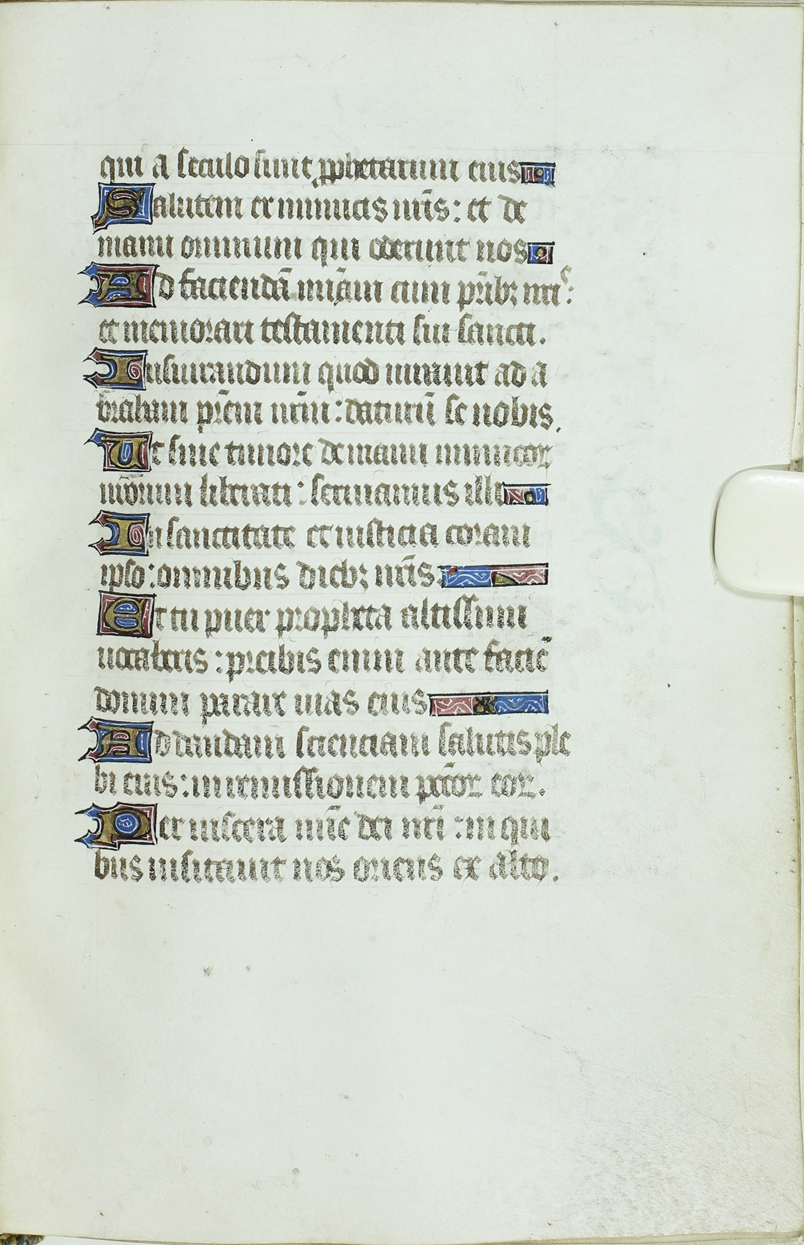 qui a seculo sunt ꝓphetarum eius
Salutem ex inimicis nr̄is: et de
manu omnium qui oderunt nos
Ad faciendā mīam cum pr̄ibꝫ nr̄is:
et memorari testamenti sui sancti.
Iusiurandum quod iurauit ad a
braham pr̄em nr̄m: daturū se nobis.
Ut sine timore de manu inimicoꝝ
nr̄orum liberati: seruiamus illi
In sanctitate et iusticia coram
ipso: omnibus diebꝫ nr̄is
Et tu puer propheta altissimi
uocaberis: preibis enim ante faciē
domini parare uias eius
Ad dandam scienciam salutis ple
bi eius: in remissionem pctōꝝ eoꝝ.
Per uiscera mīe dei nr̄i: in qui
bus uisitauit nos oriens ex alto.